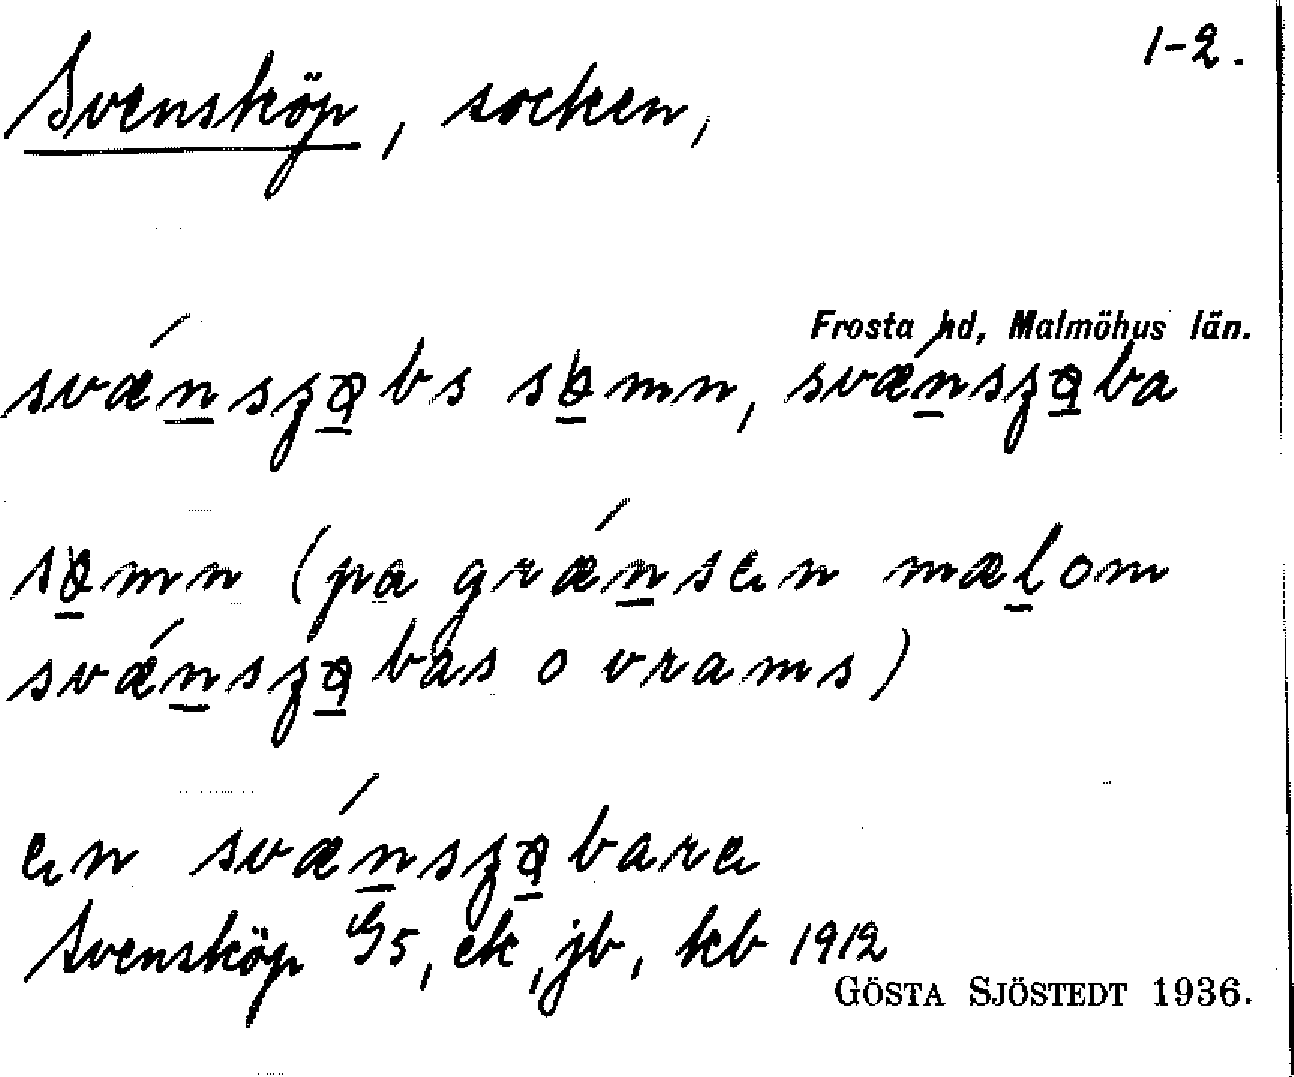 1-2.
Svensköp, socken,
Frosta hd, Malmöhus län.
svǽn̲szø̲bs sø̲mn, svǽn̲szø̲ba
sø̲mn (pa̲ grǽn̲sen mæl̲om
svǽn̲szø̲bas o vrams)
en svǽn̲szø̲bare
Svensköp G5, ek, jb, kb 1912
GÖSTA SJÖSTEDT 1936.